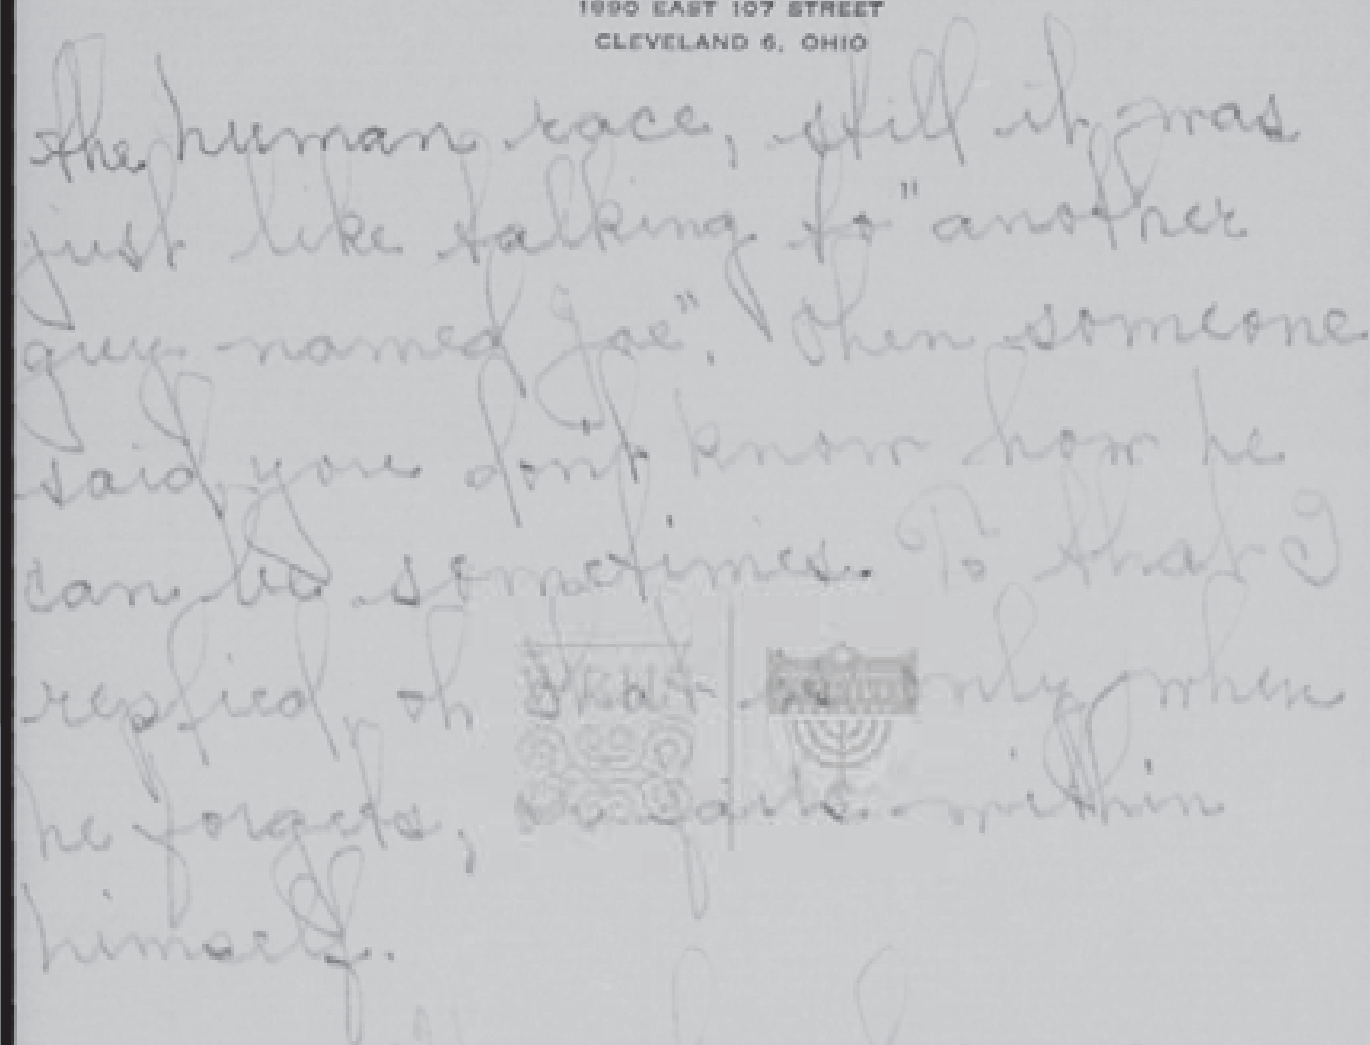 1890 EAST 107 STREET
CLEVELAND 6, OHIO
the human race, still it was
just like talking to "another
guy named Joe". Then someone
said, you don't know how he
can be sometimes. To that I
replied, oh that is only when
he forgets, within
himself.